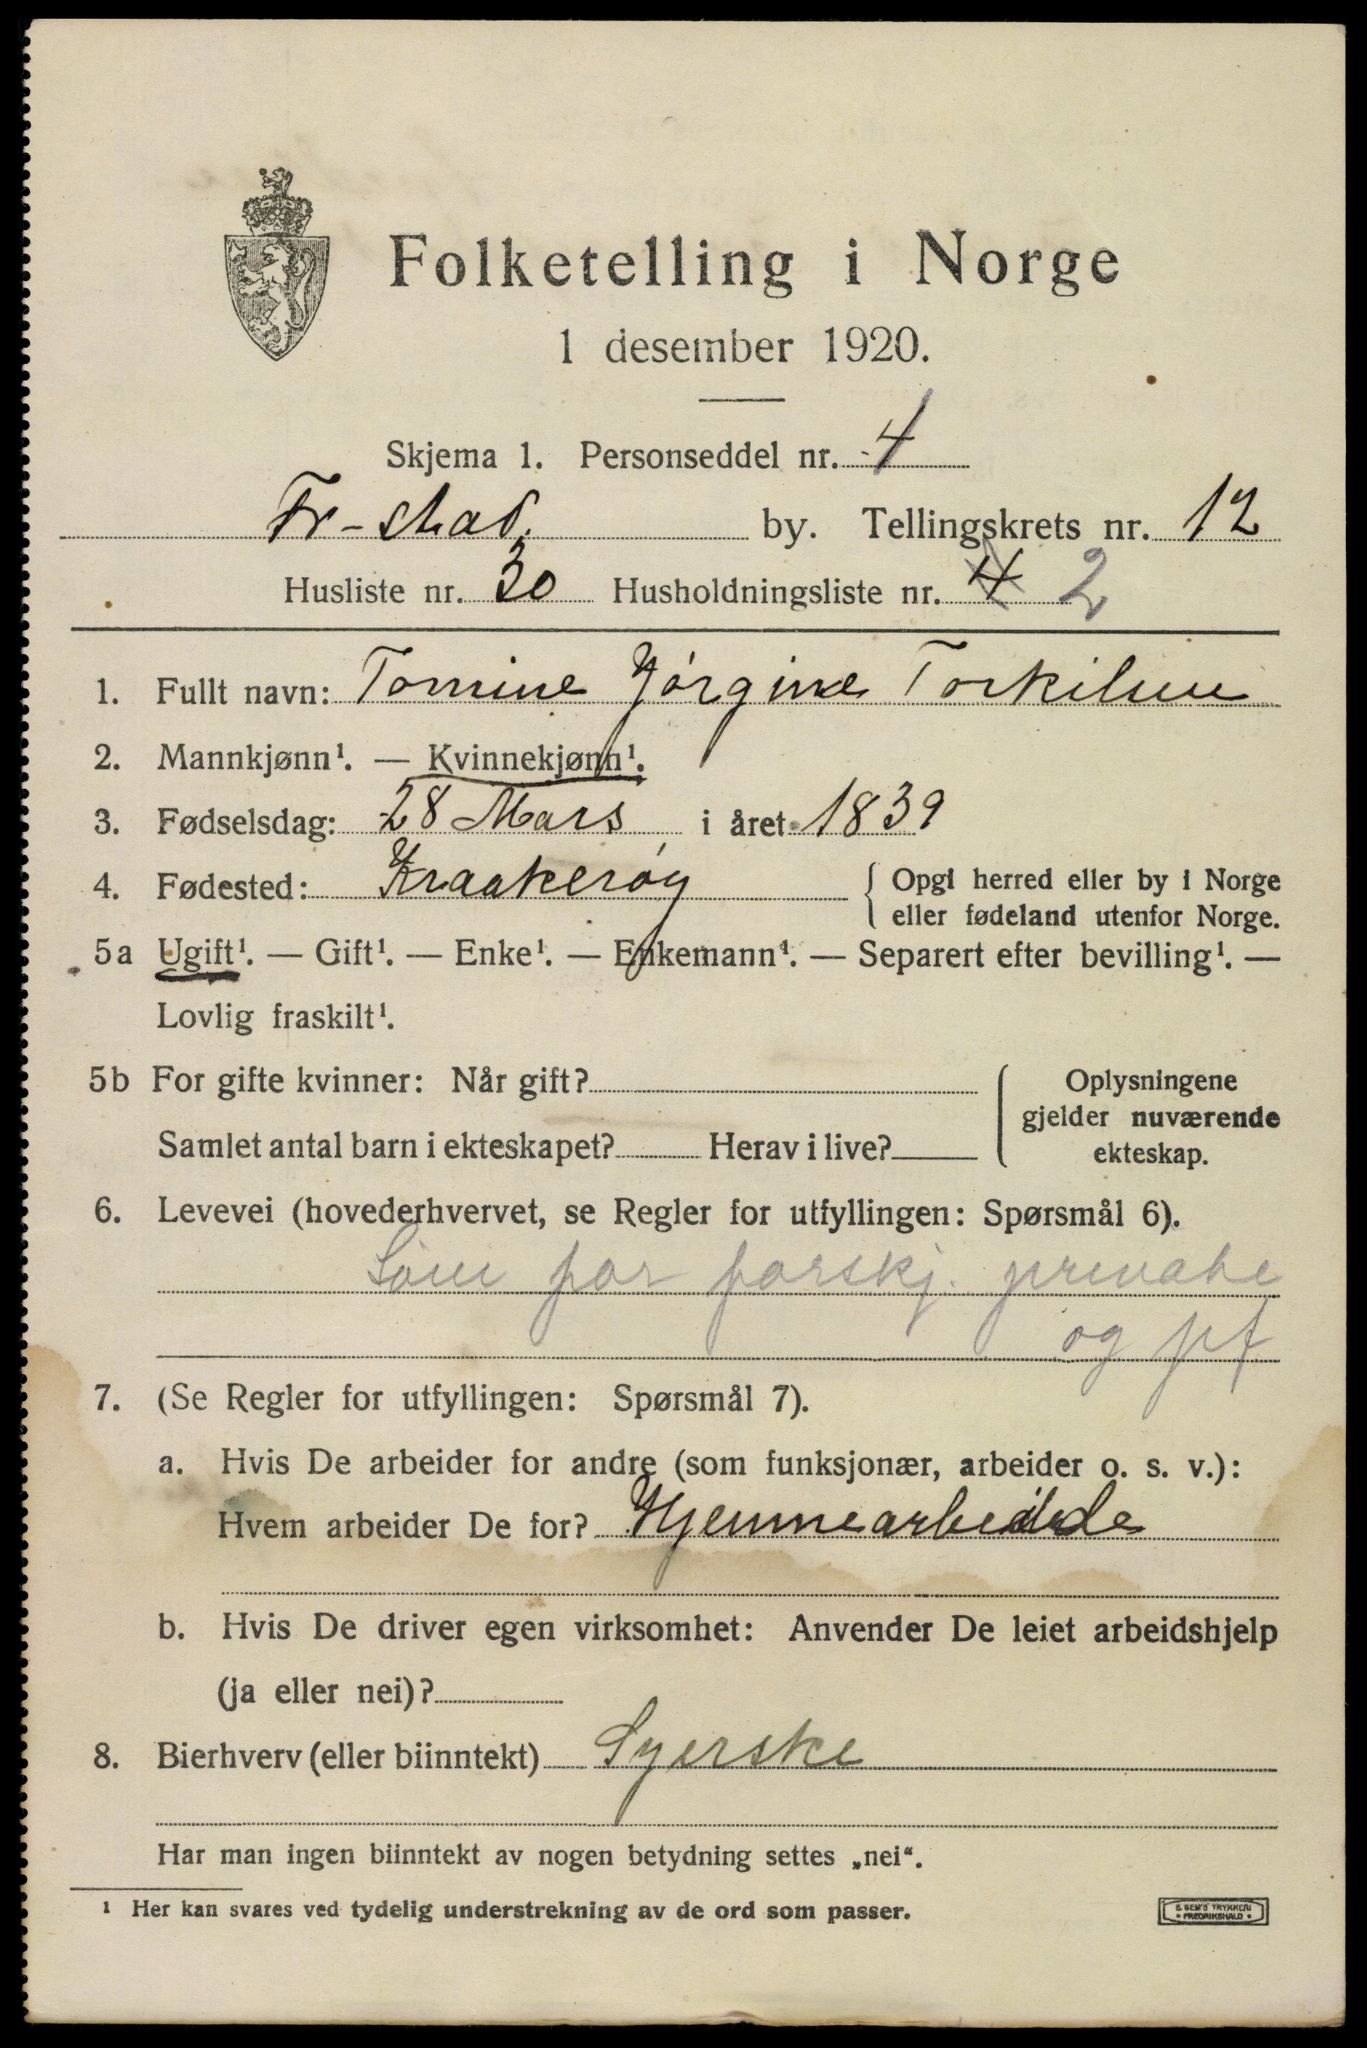 Folketelling i Norge
1 desember 1920.
Skjema 1. Personseddel nr. 4
Fr-stad. by. Tellingskrets nr. 12
Husliste nr. 30 Husholdningsliste nr. 4 2
1. Fullt navn: Tomine Jörgine Torkilsen
2. Mannkjønn¹. — Kvinnekjønn¹.
3. Fødselsdag: 28 Mars i året 1839
4. Fødested: Kraakeröy { Opgi herred eller by i Norge
eller fødeland utenfor Norge.
5a Ugift¹. — Gift¹. — Enke¹. — Enkemann¹. — Separert efter bevilling¹. —
Lovlig fraskilt¹.
5b For gifte kvinner: Når gift? ( Oplysningene
gjelder nuværende
Samlet antal barn i ekteskapet? Herav i live? ekteskap.
6. Levevei (hovederhvervet, se Regler for utfyllingen: Spørsmål 6).
for forskj. private
og
7. (Se Regler for utfyllingen: Spørsmål 7).
a. Hvis De arbeider for andre (som funksjonær, arbeider o. s. v.):
Hvem arbeider De for?
b. Hvis De driver egen virksomhet: Anvender De leiet arbeidshjelp
(ja eller nei)?
8. Bierhverv (eller biinntekt) Syerske
Har man ingen biinntekt av nogen betydning settes „nei“.
¹ Her kan svares ved tydelig understrekning av de ord som passer.
E. SEM'S TRYKKERI
• FREDRIKSHALD •